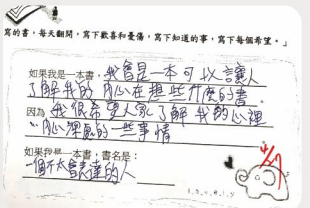 寫的書，每天翻開，寫下歡喜和憂傷，寫下知道的事，寫下每個希望。」
如果我是一本書，我會是一本可以讓人
了解我的內心在想些什麼的書。
因為我很希望人家了解我的心裡
內心裡感的一些事情
如果我是一本書，書名是：
一個不太會表達的人
4/7